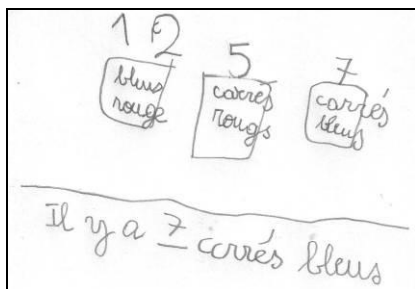 12
bleus
rouge
5
carrés
rougs
7
carrés
bleus
Il y a 7 carrés bleus